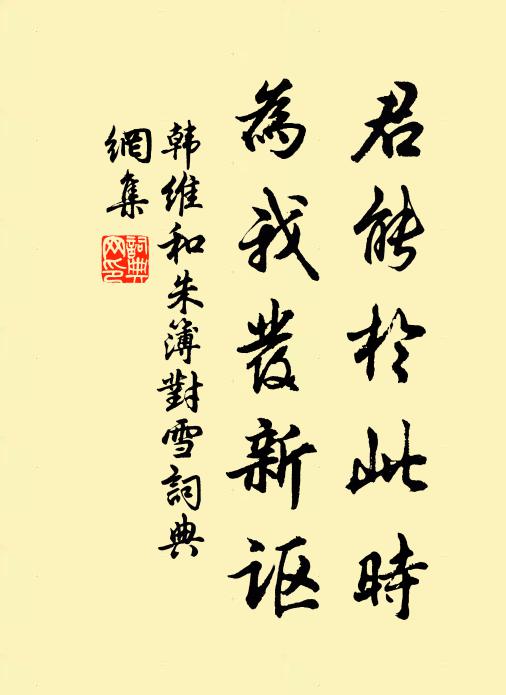 君能於此時
為我發新讴
韩维和朱簿對雪詞典
網集
詞典网印